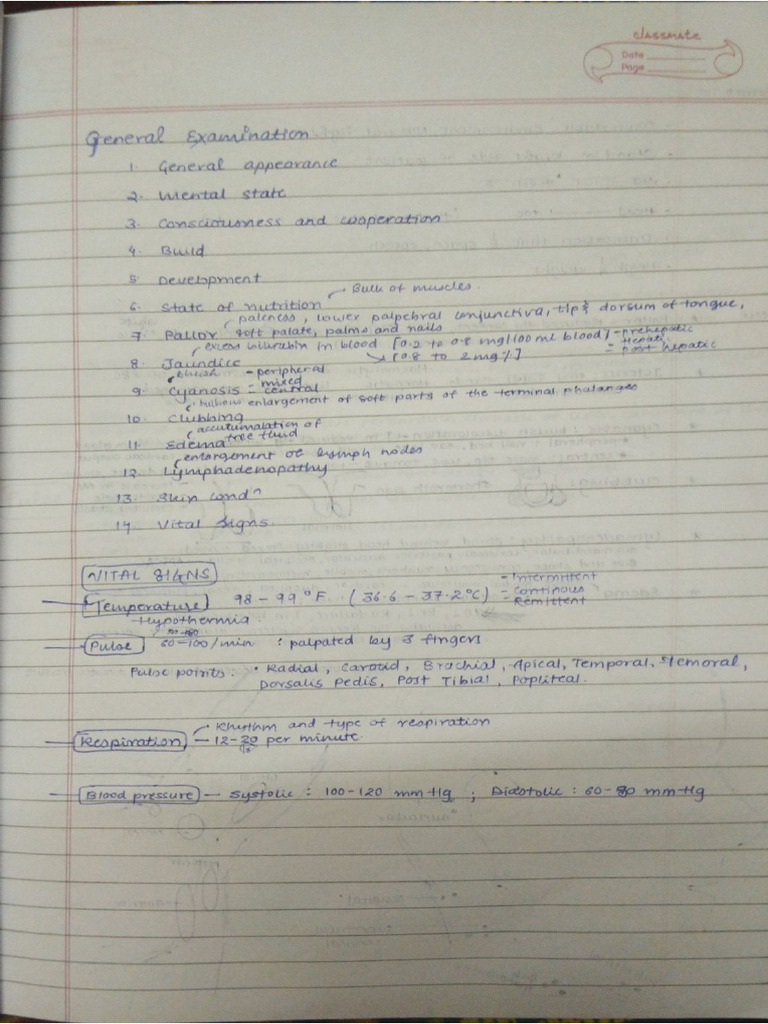 classmate
Date
Page
General Examination
1. General appearance
2. Mental state
3. Consciousness and cooperation
4. Build
5. Development
Bulk of muscles.
6. State of nutrition
paleness, lower palpebral conjunctiva, tip & dorsum of tongue,
7. Pallor soft palate, palms and nails
excess bilirubin in blood [0.2 to 0.8 mg/100 ml blood] - prehepatic
- Hepatic
8. Jaundice [0.8 to 2 mg%] - post hepatic
bluish - peripheral
- mixed
9. Cyanosis - central
bulbous enlargement of soft parts of the terminal phalanges
10. Clubbing
accutumalation of
free fluid
11. Edema
enlargement of lymph nodes
12. Lymphadenopathy
13. Skin condn
14. Vital signs.
VITAL SIGNS
- Intermittent
Temperature 98 - 99°F (36.6 - 37.2°C) - Continous
- Remittent
Hypothermia
Pulse 60-100/min : palpated by 3 fingers
Pulse points : • Radial, Carotid, Brachial, Apical, Temporal, Femoral,
Dorsalis Pedis, Post Tibial, Popliteal.
Rhythm and type of respiration
Respiration - 12-20 per minute.
Blood pressure - Systolic : 100-120 mm Hg ; Diastolic : 60-80 mm Hg